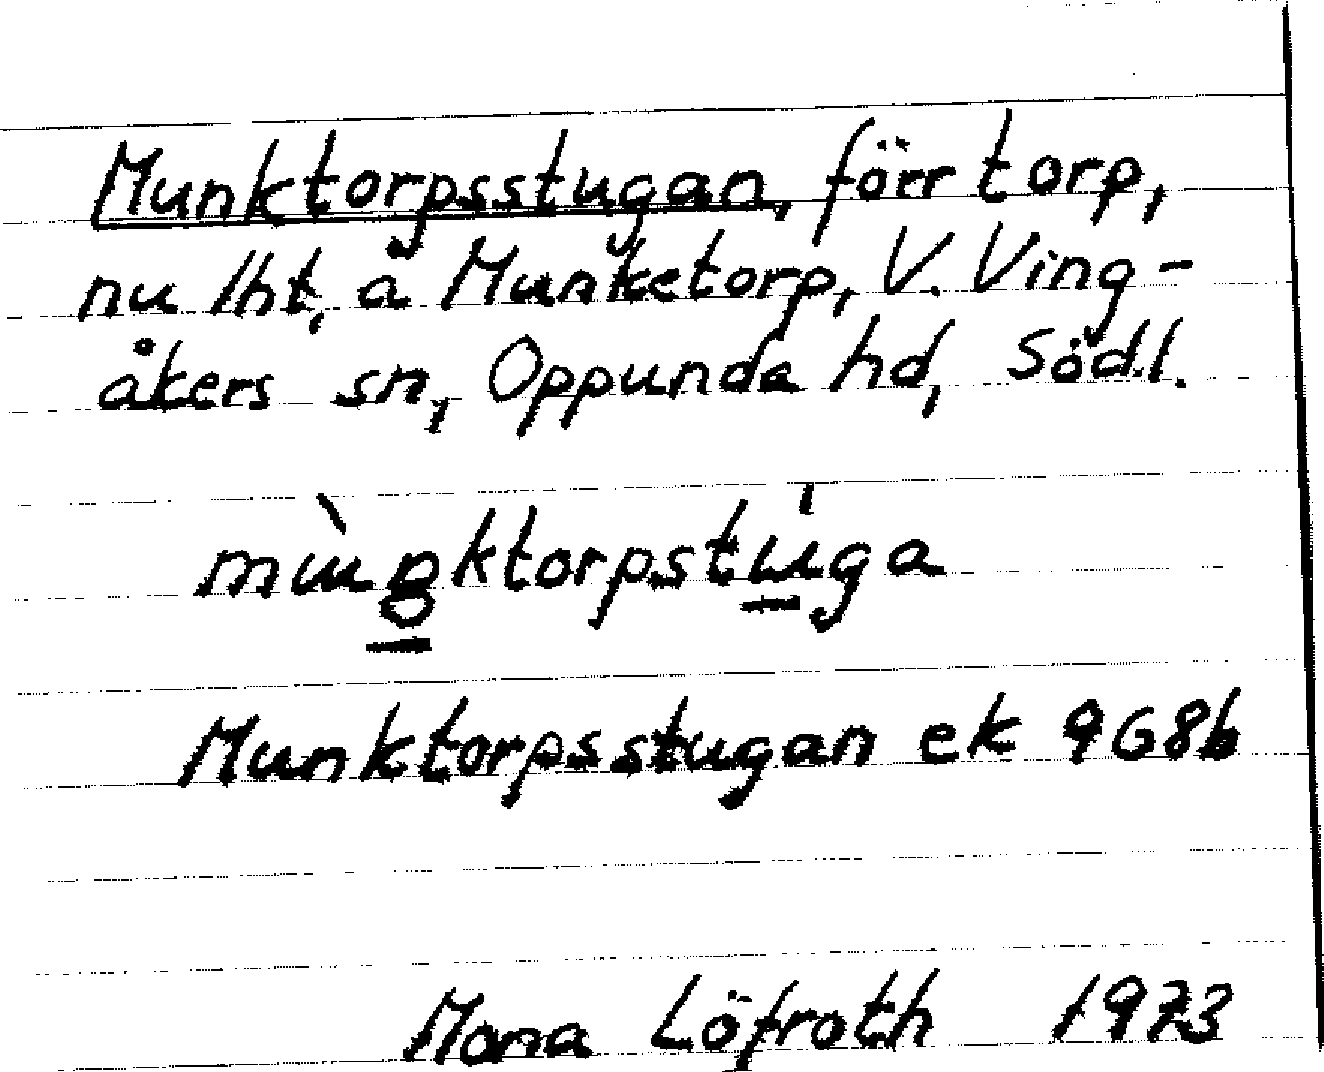 Munktorpsstugan, förr torp,
nu lht, å Munketorp, V. Ving-
åkers sn, Oppunda hd, Södl.
mùŋktorpstúga
Munktorpsstugan ek 9G8b
Mona Löfroth 1973